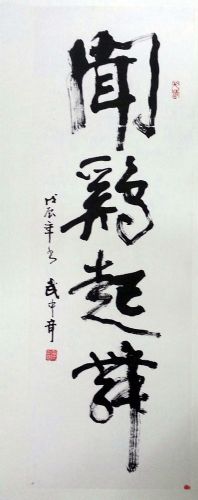 聞鷄起舞
戊辰年
武中奇